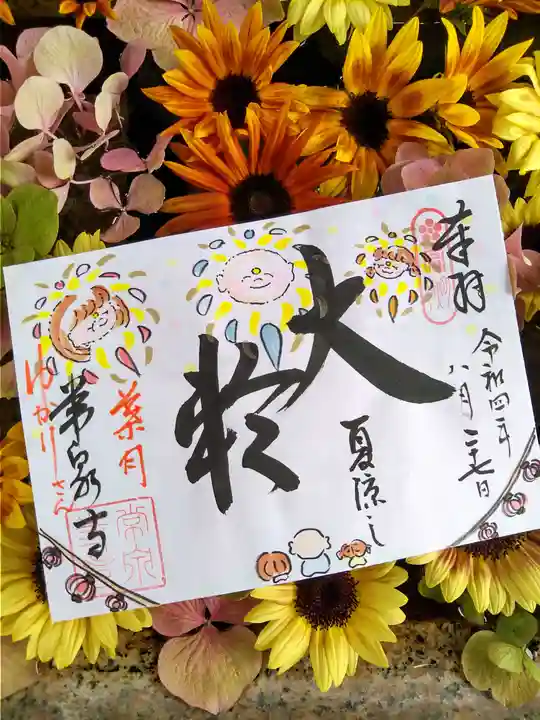 奉拝
令和四年
八月二十七日
大
夏涼し
葉月
常泉寺
ゆかりさん